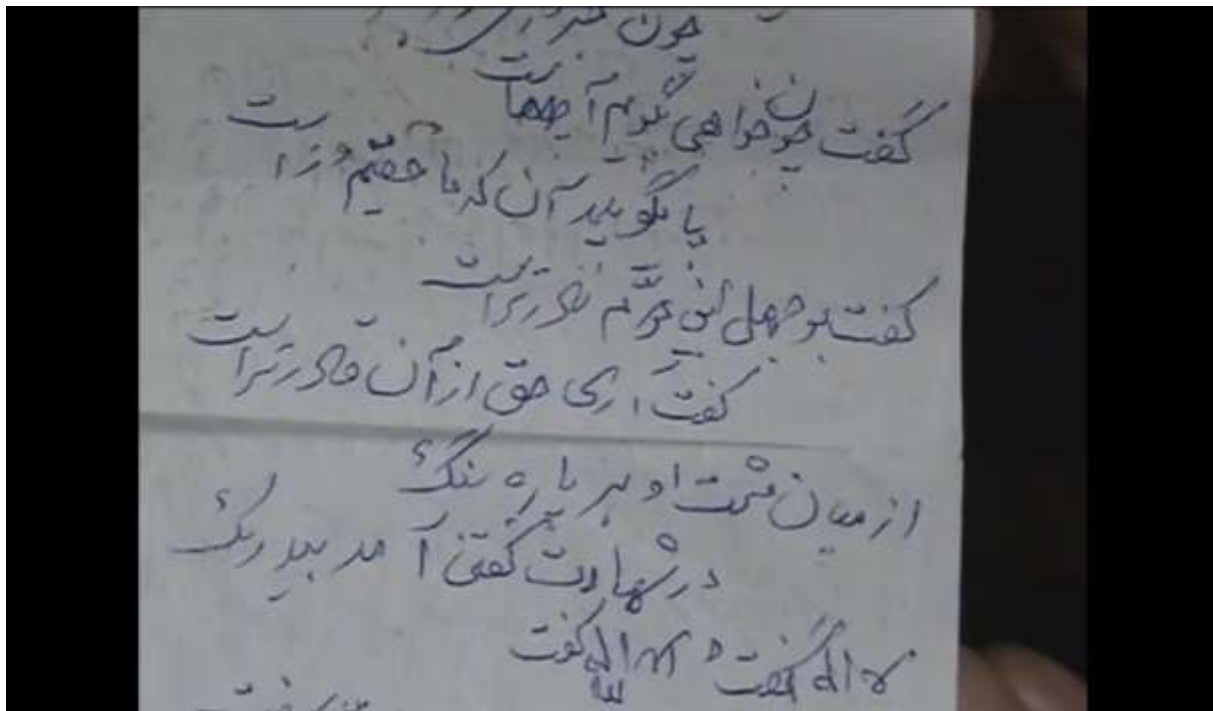 چون
گفت چون خواهی بگویم آن چهاست
یا بگویند آن که ما حقیم و راست
گفت بوجهل این دوم نادرتر است
گفت اری حق از آن قادرتر است
از میان مشت او هر پاره سنگ
در شهادت گفتن آمد بیدرنگ
لا اله گفت و الا الله گفت